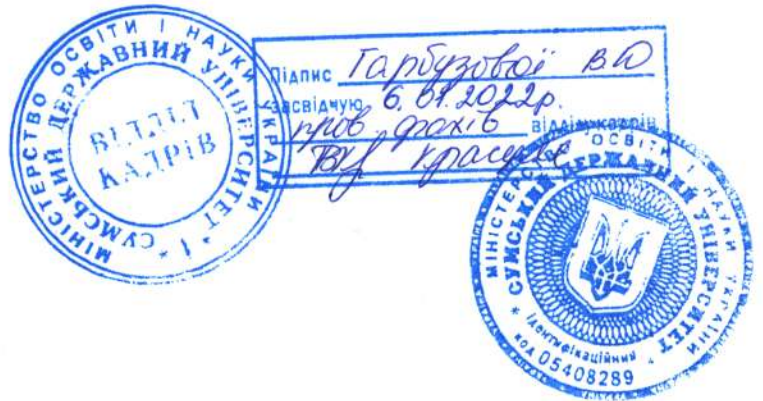 МІНІСТЕРСТВО ОСВІТИ І НАУКИ УКРАЇНИ
* СУМСЬКИЙ ДЕРЖАВНИЙ УНІВЕРСИТЕТ *
1
ВІДДІЛ
КАДРІВ
Підпис Гарбузової В Ю
засвідчую 6.01.2022р.
пров. фахів відділу кадрів
МІНІСТЕРСТВО ОСВІТИ І НАУКИ УКРАЇНИ
* СУМСЬКИЙ ДЕРЖАВНИЙ УНІВЕРСИТЕТ *
Ідентифікаційний
код 05408289